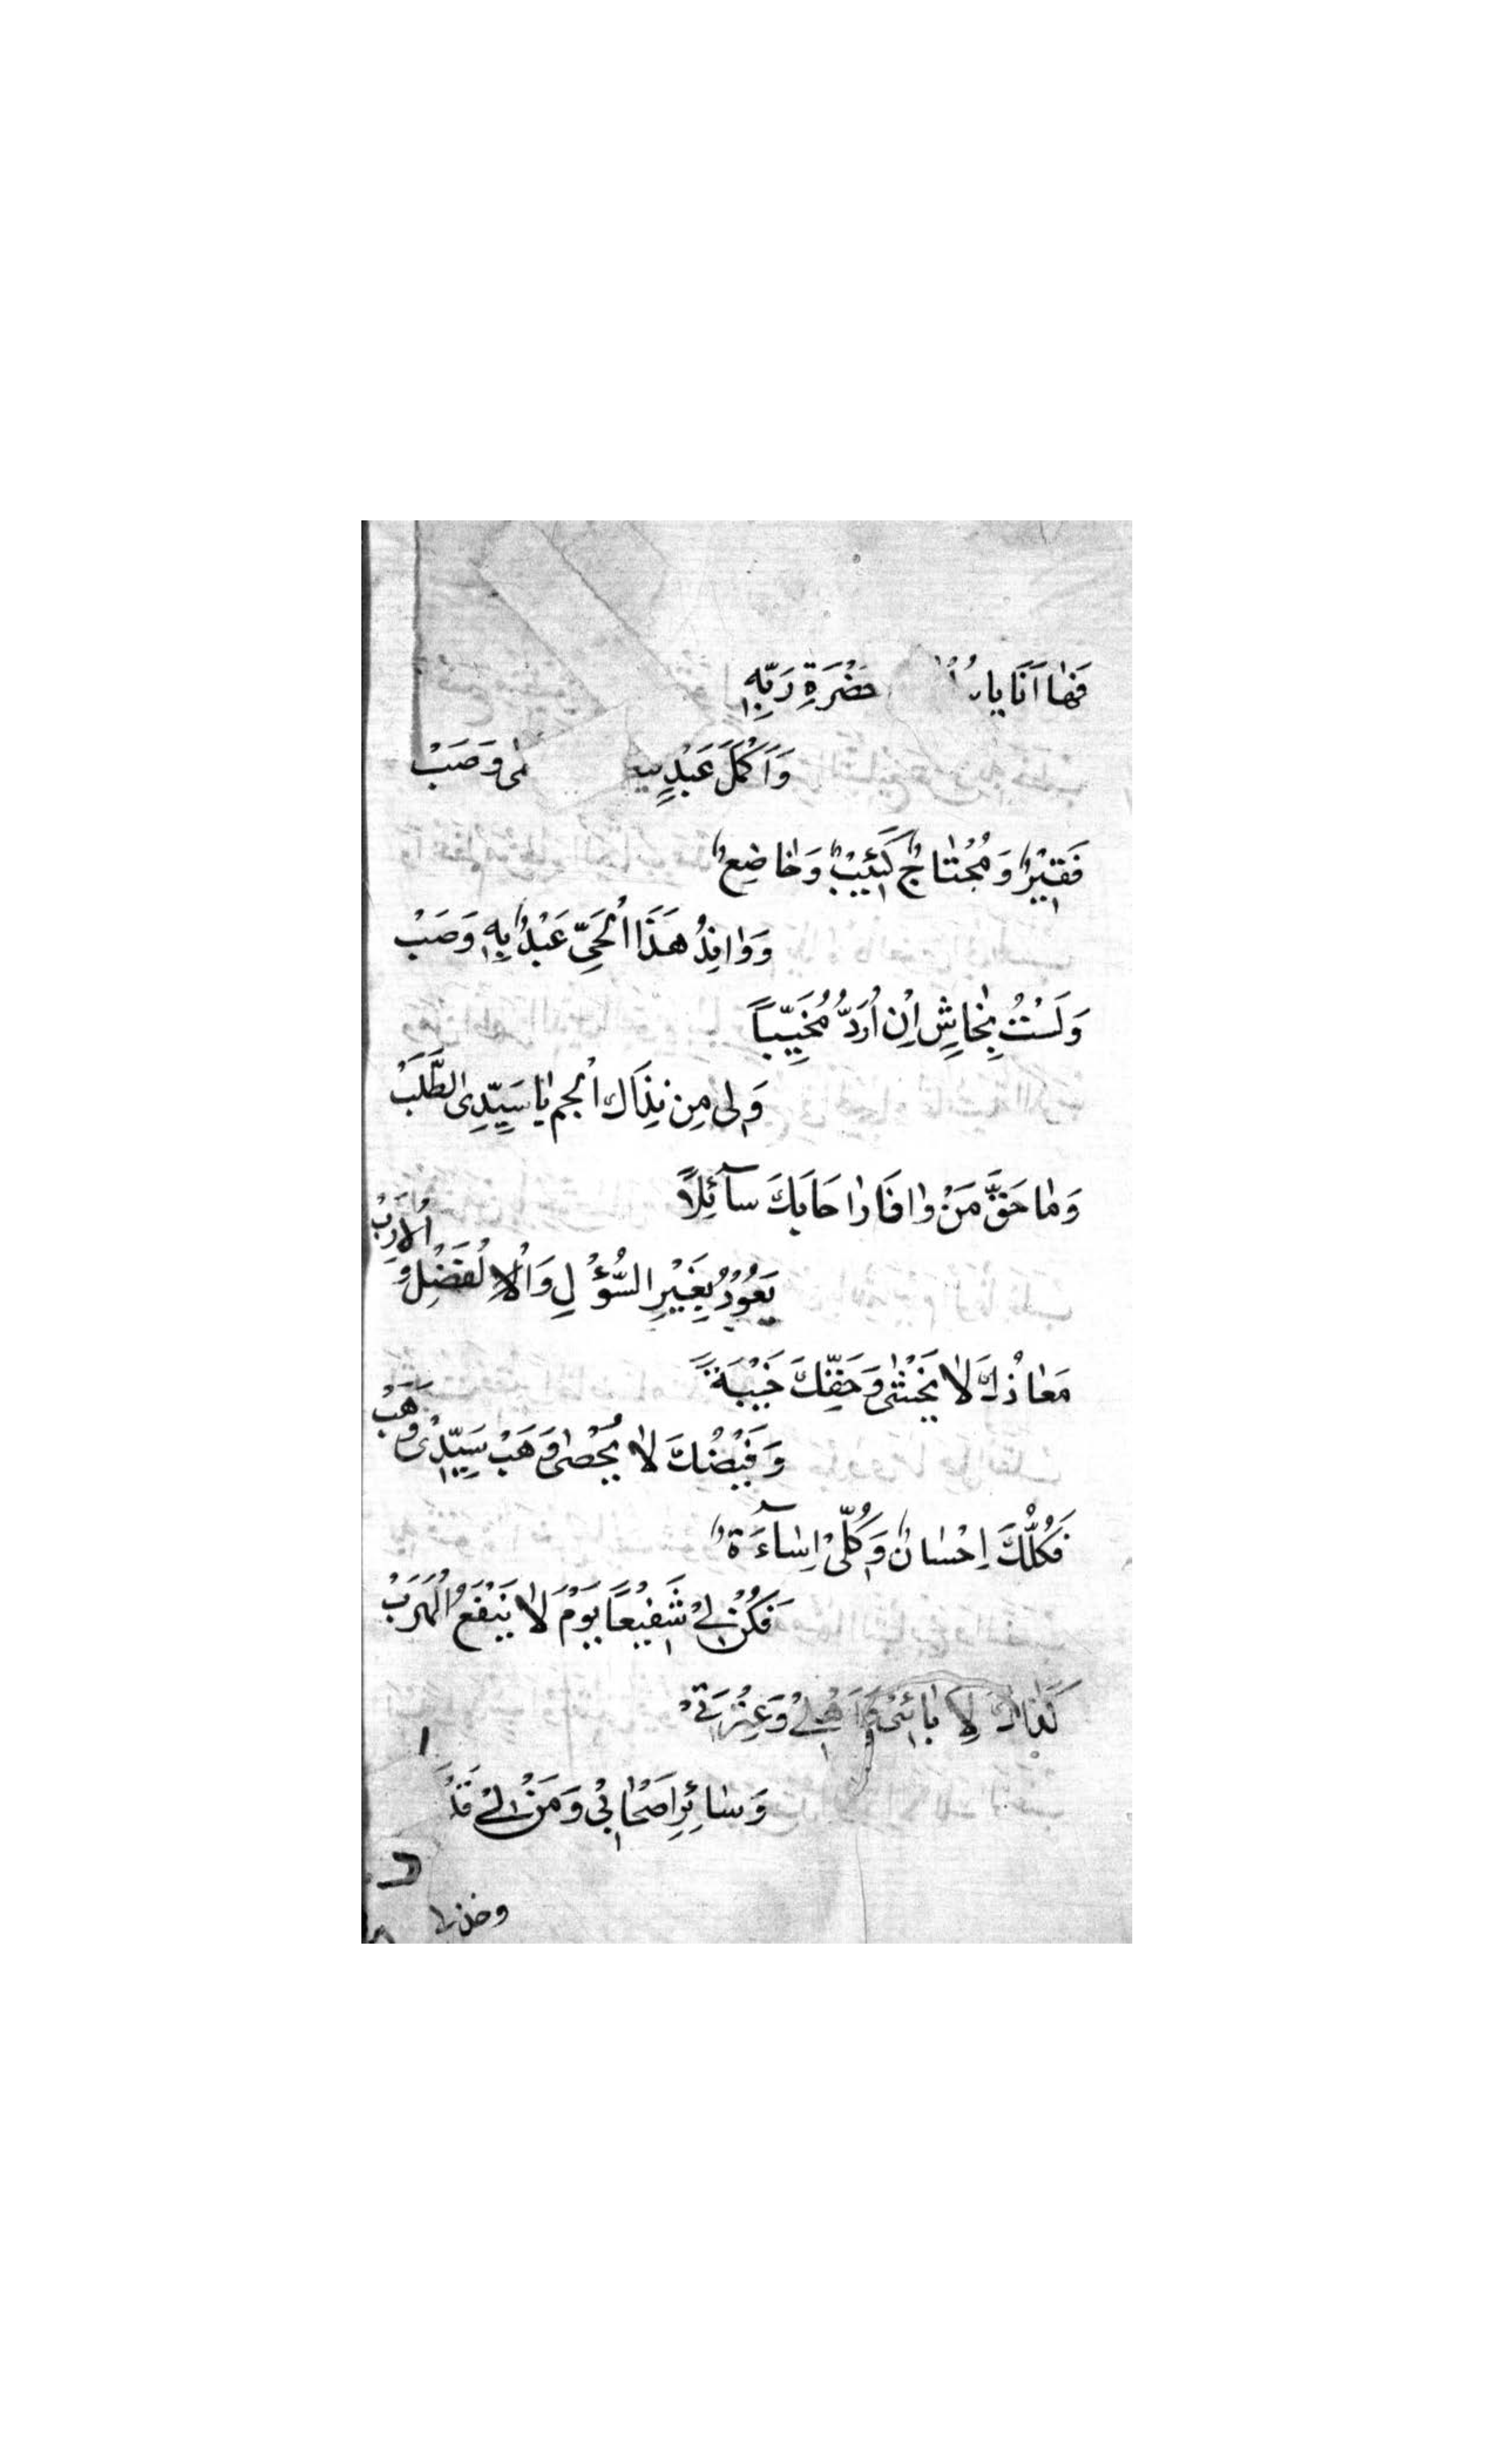 فَهَا اَنَا يا حَضْرَةِ رَبِّهِ
وَاَكْمَلَ عَبْدٍ وَصَبْ
فَقِيْرٌ وَمُحْتَاجٌ كَئِيْبٌ وَخَاضِعٌ
وَوَافِدُ هَذَا الْحَيِّ عَبْدٌ بِهِ وَصَبْ
وَلَسْتُ بِخَاشٍ اِنْ اُرَدُّ مُخَيَّباً
وَلِى مِن نِذَاك الجم يَا سَيِّدِى الطَّلَبْ
وَمَا حَقَّ مَنْ وَافَا رَاحَابَكَ سآئِلاً
يَعُوْدُ بِغَيْرِ السُّؤْلِ وَالْفَضْلِ وَ الْاَرَبْ
مَعَاذَكَ لَا يَخْشَى وَحَقِّكَ خَيْبَةً
وَفَيْضُكَ لَا يُحْصَى وَهَبْ سَيِّدِىْ وَهَبْ
فَكُلُّكَ اِحْسَانٌ وَكُلِّىْ اِسَآءَةٌ
فَكُنْ لِىْ شَفِيْعًا يَوْمَ لَا يَنْفَعُ الْهَرَبْ
كَذَاكَ لِاٰبَائِىْ وَاَهْلِىْ وَعِتْرَتِىْ
وَسَائِرِ اَصْحَابِىْ وَمَنْ لِىْ قَدْ